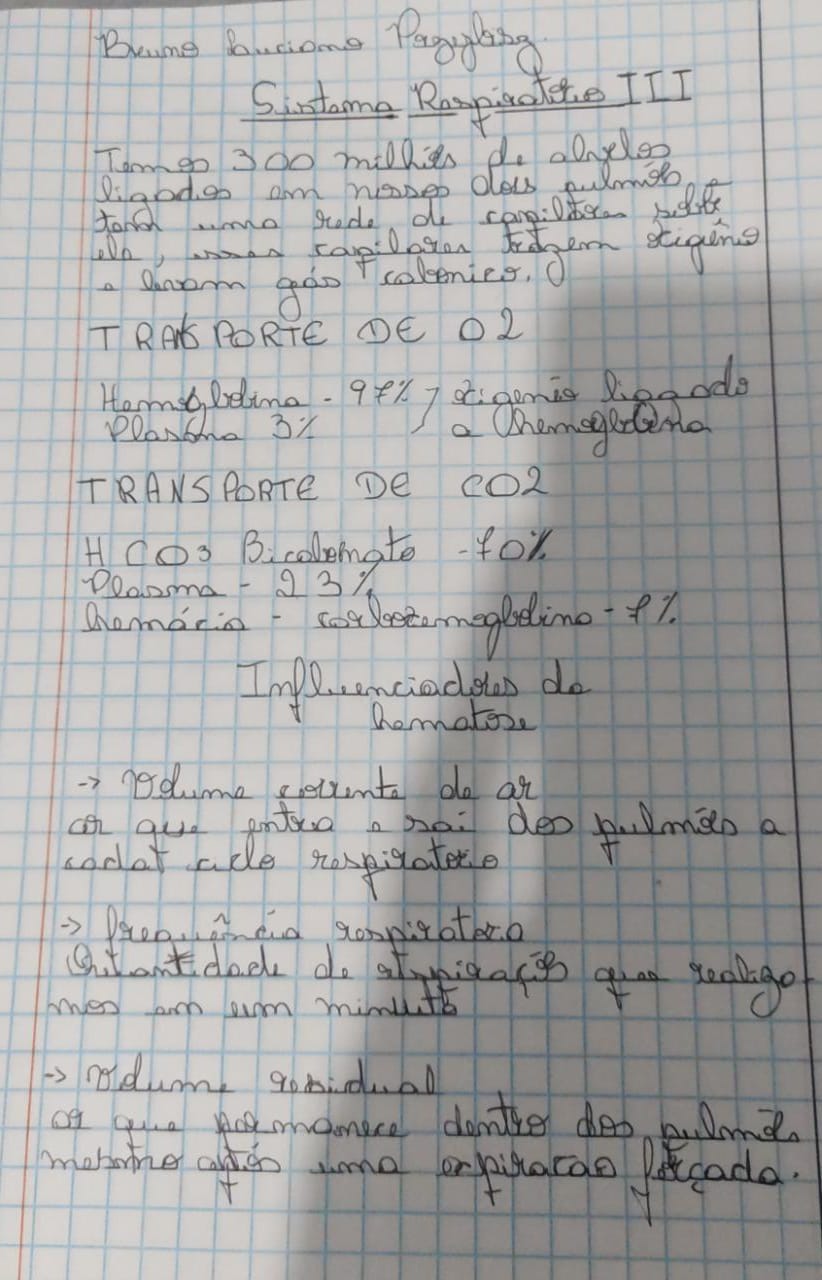 Bruno Luciano
Sistema Respiratório III
Temos 300 milhões de alvéolos
ligados em nossos dois pulmões, e
tem uma rede de capilares sobre
ela, esses capilares trazem oxigênio
e levam gás carbonico.
TRANSPORTE DE O2
Hemoglobina - 97% } oxigenio ligado
Plasma 3% a hemoglobina
TRANSPORTE DE CO2
HCO3 Bicabonato - 70%
Plasma - 23%
hemácia - carboemoglobina - 7%
Influenciadores da
hematose
-> Volume corrente de ar
ar que entra e sai dos pulmões a
cada ciclo respiratorio
-> frequência respiratora
Quantidade de respirações que realiza
mos em um minuto
-> Volume residual
ar que permanece dentro dos pulmões
mesmo após uma expiracao forçada.